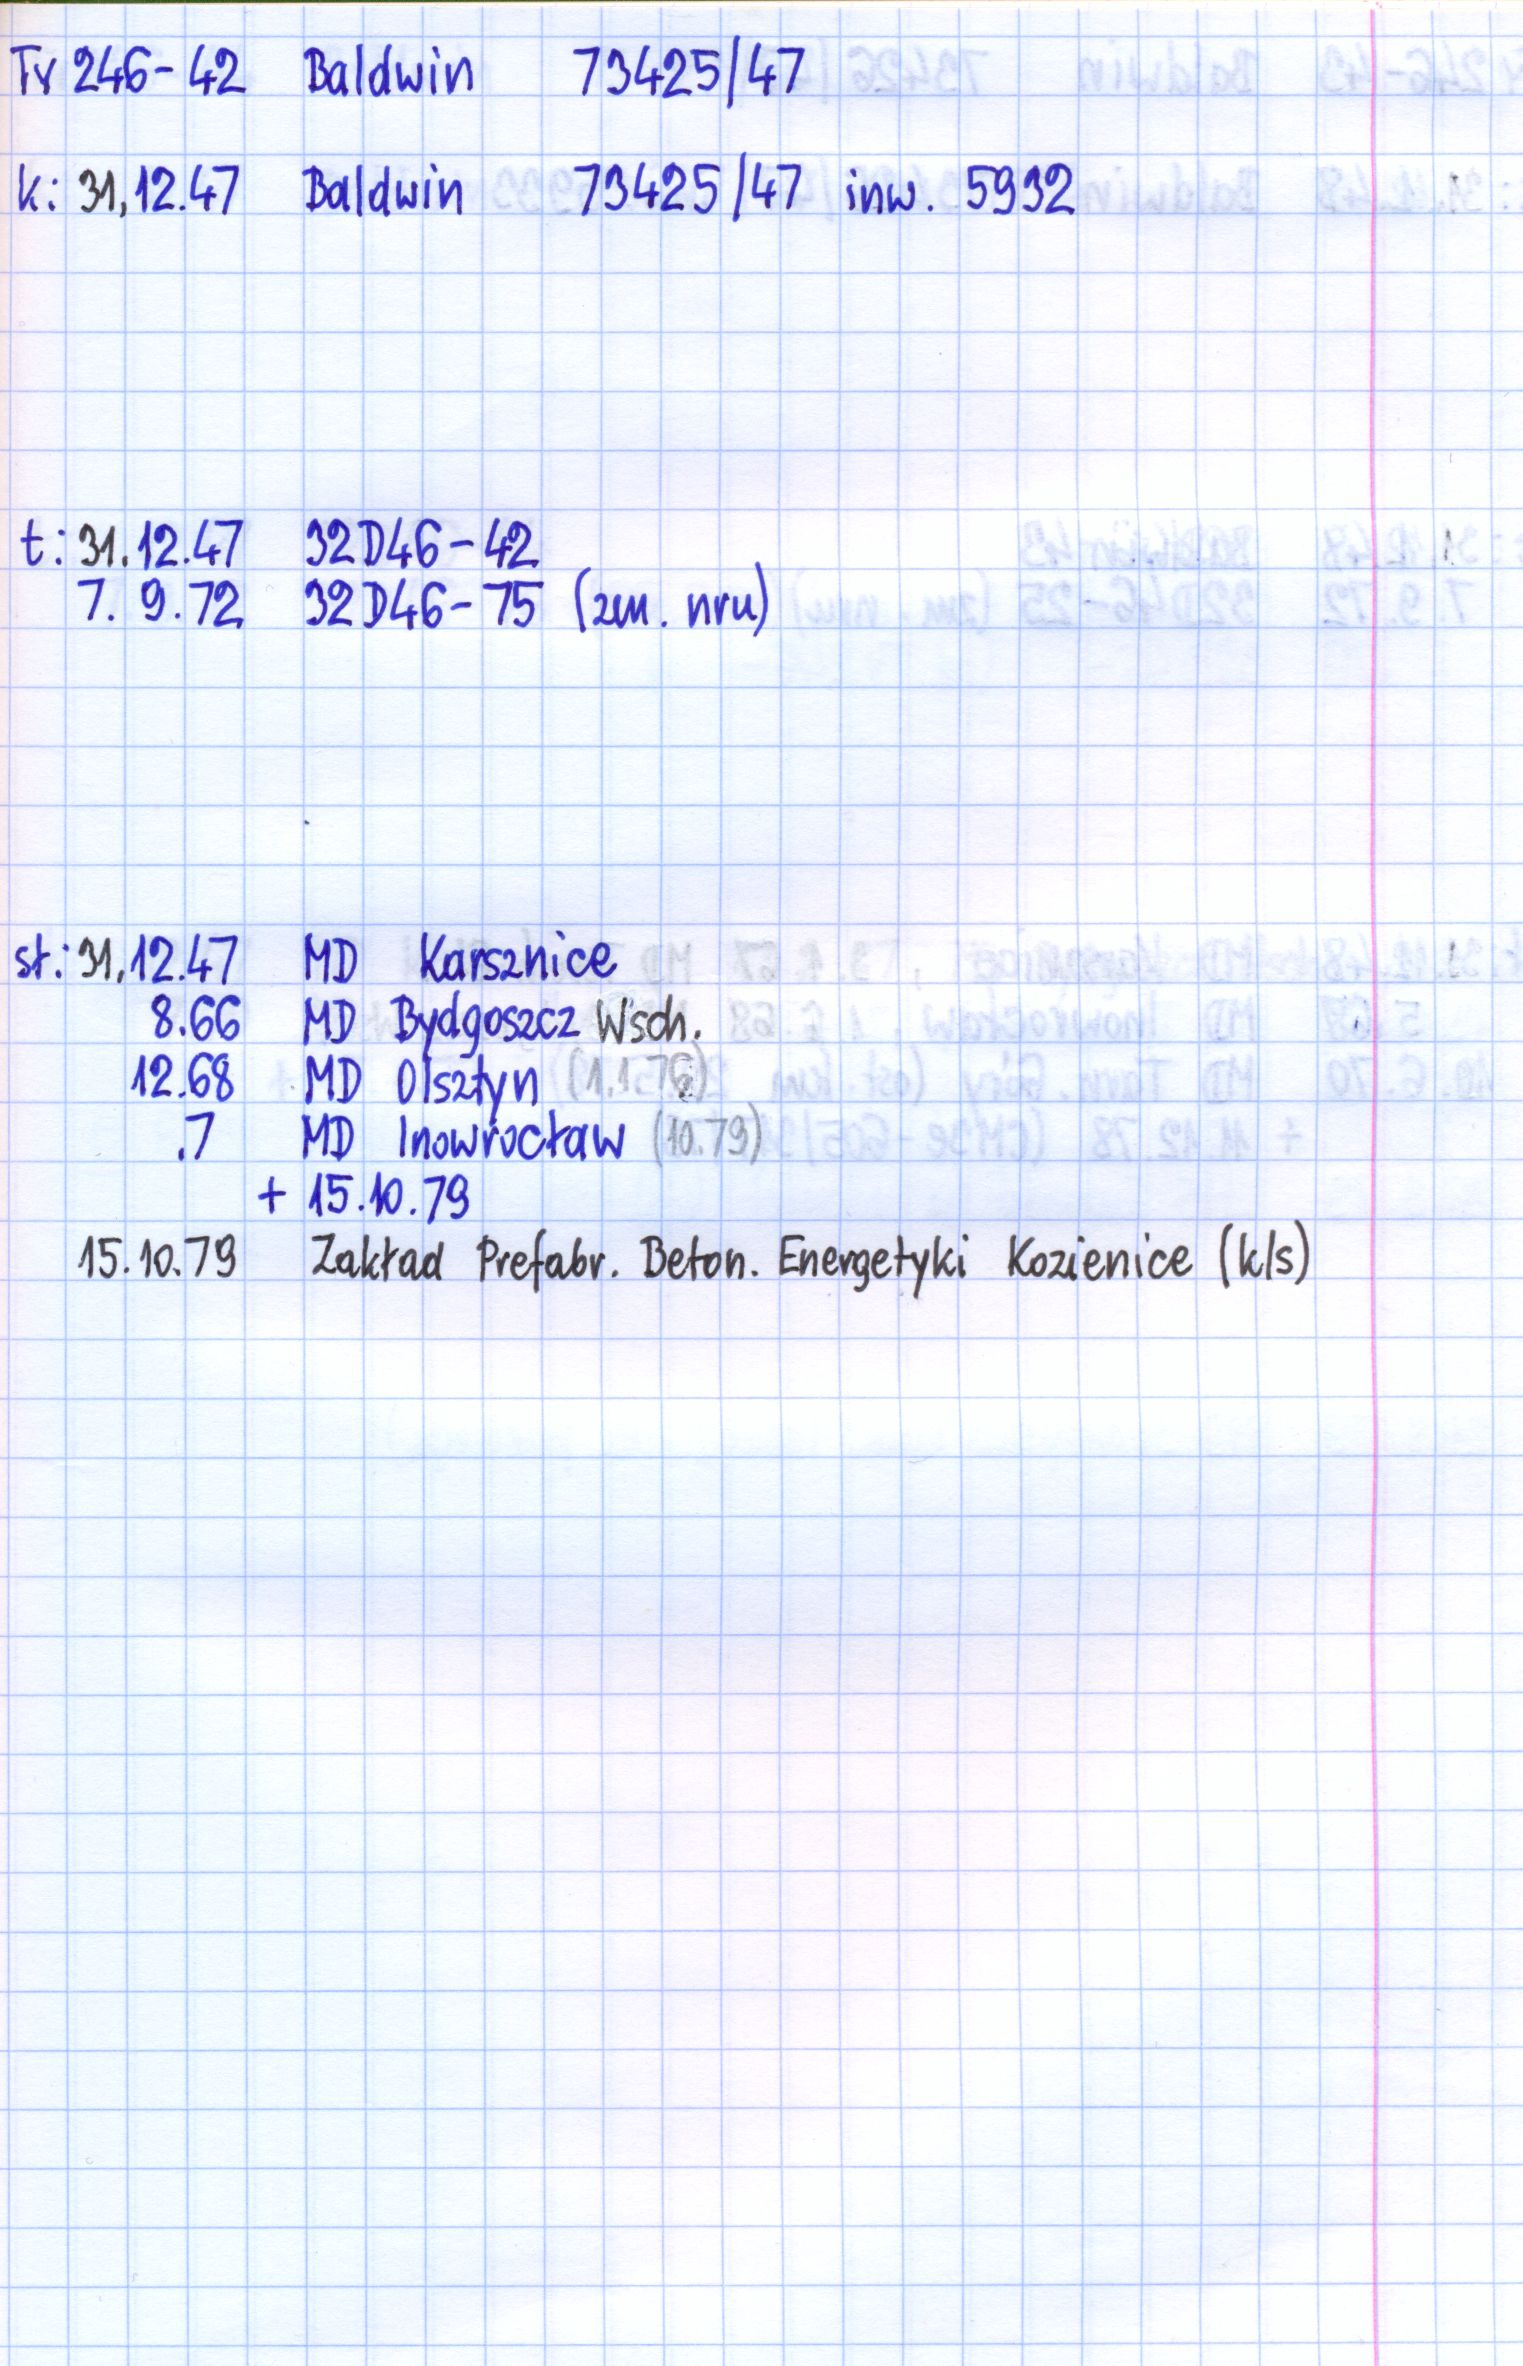 Tr 246-42 Baldwin 73425/47
k: 31.12.47 Baldwin 73425/47 inw. 5932
t: 31.12.47 32D46-42
7. 9.72 32D46-75 (zm. nru)
st: 31.12.47 MD Karsznice
8.66 MD Bydgoszcz Wsch.
12.68 MD Olsztyn
.7 MD Inowrocław (10.79)
+ 15.10.79
15.10.79 Zakład Prefabr. Beton. Energetyki Kozienice (k/s)